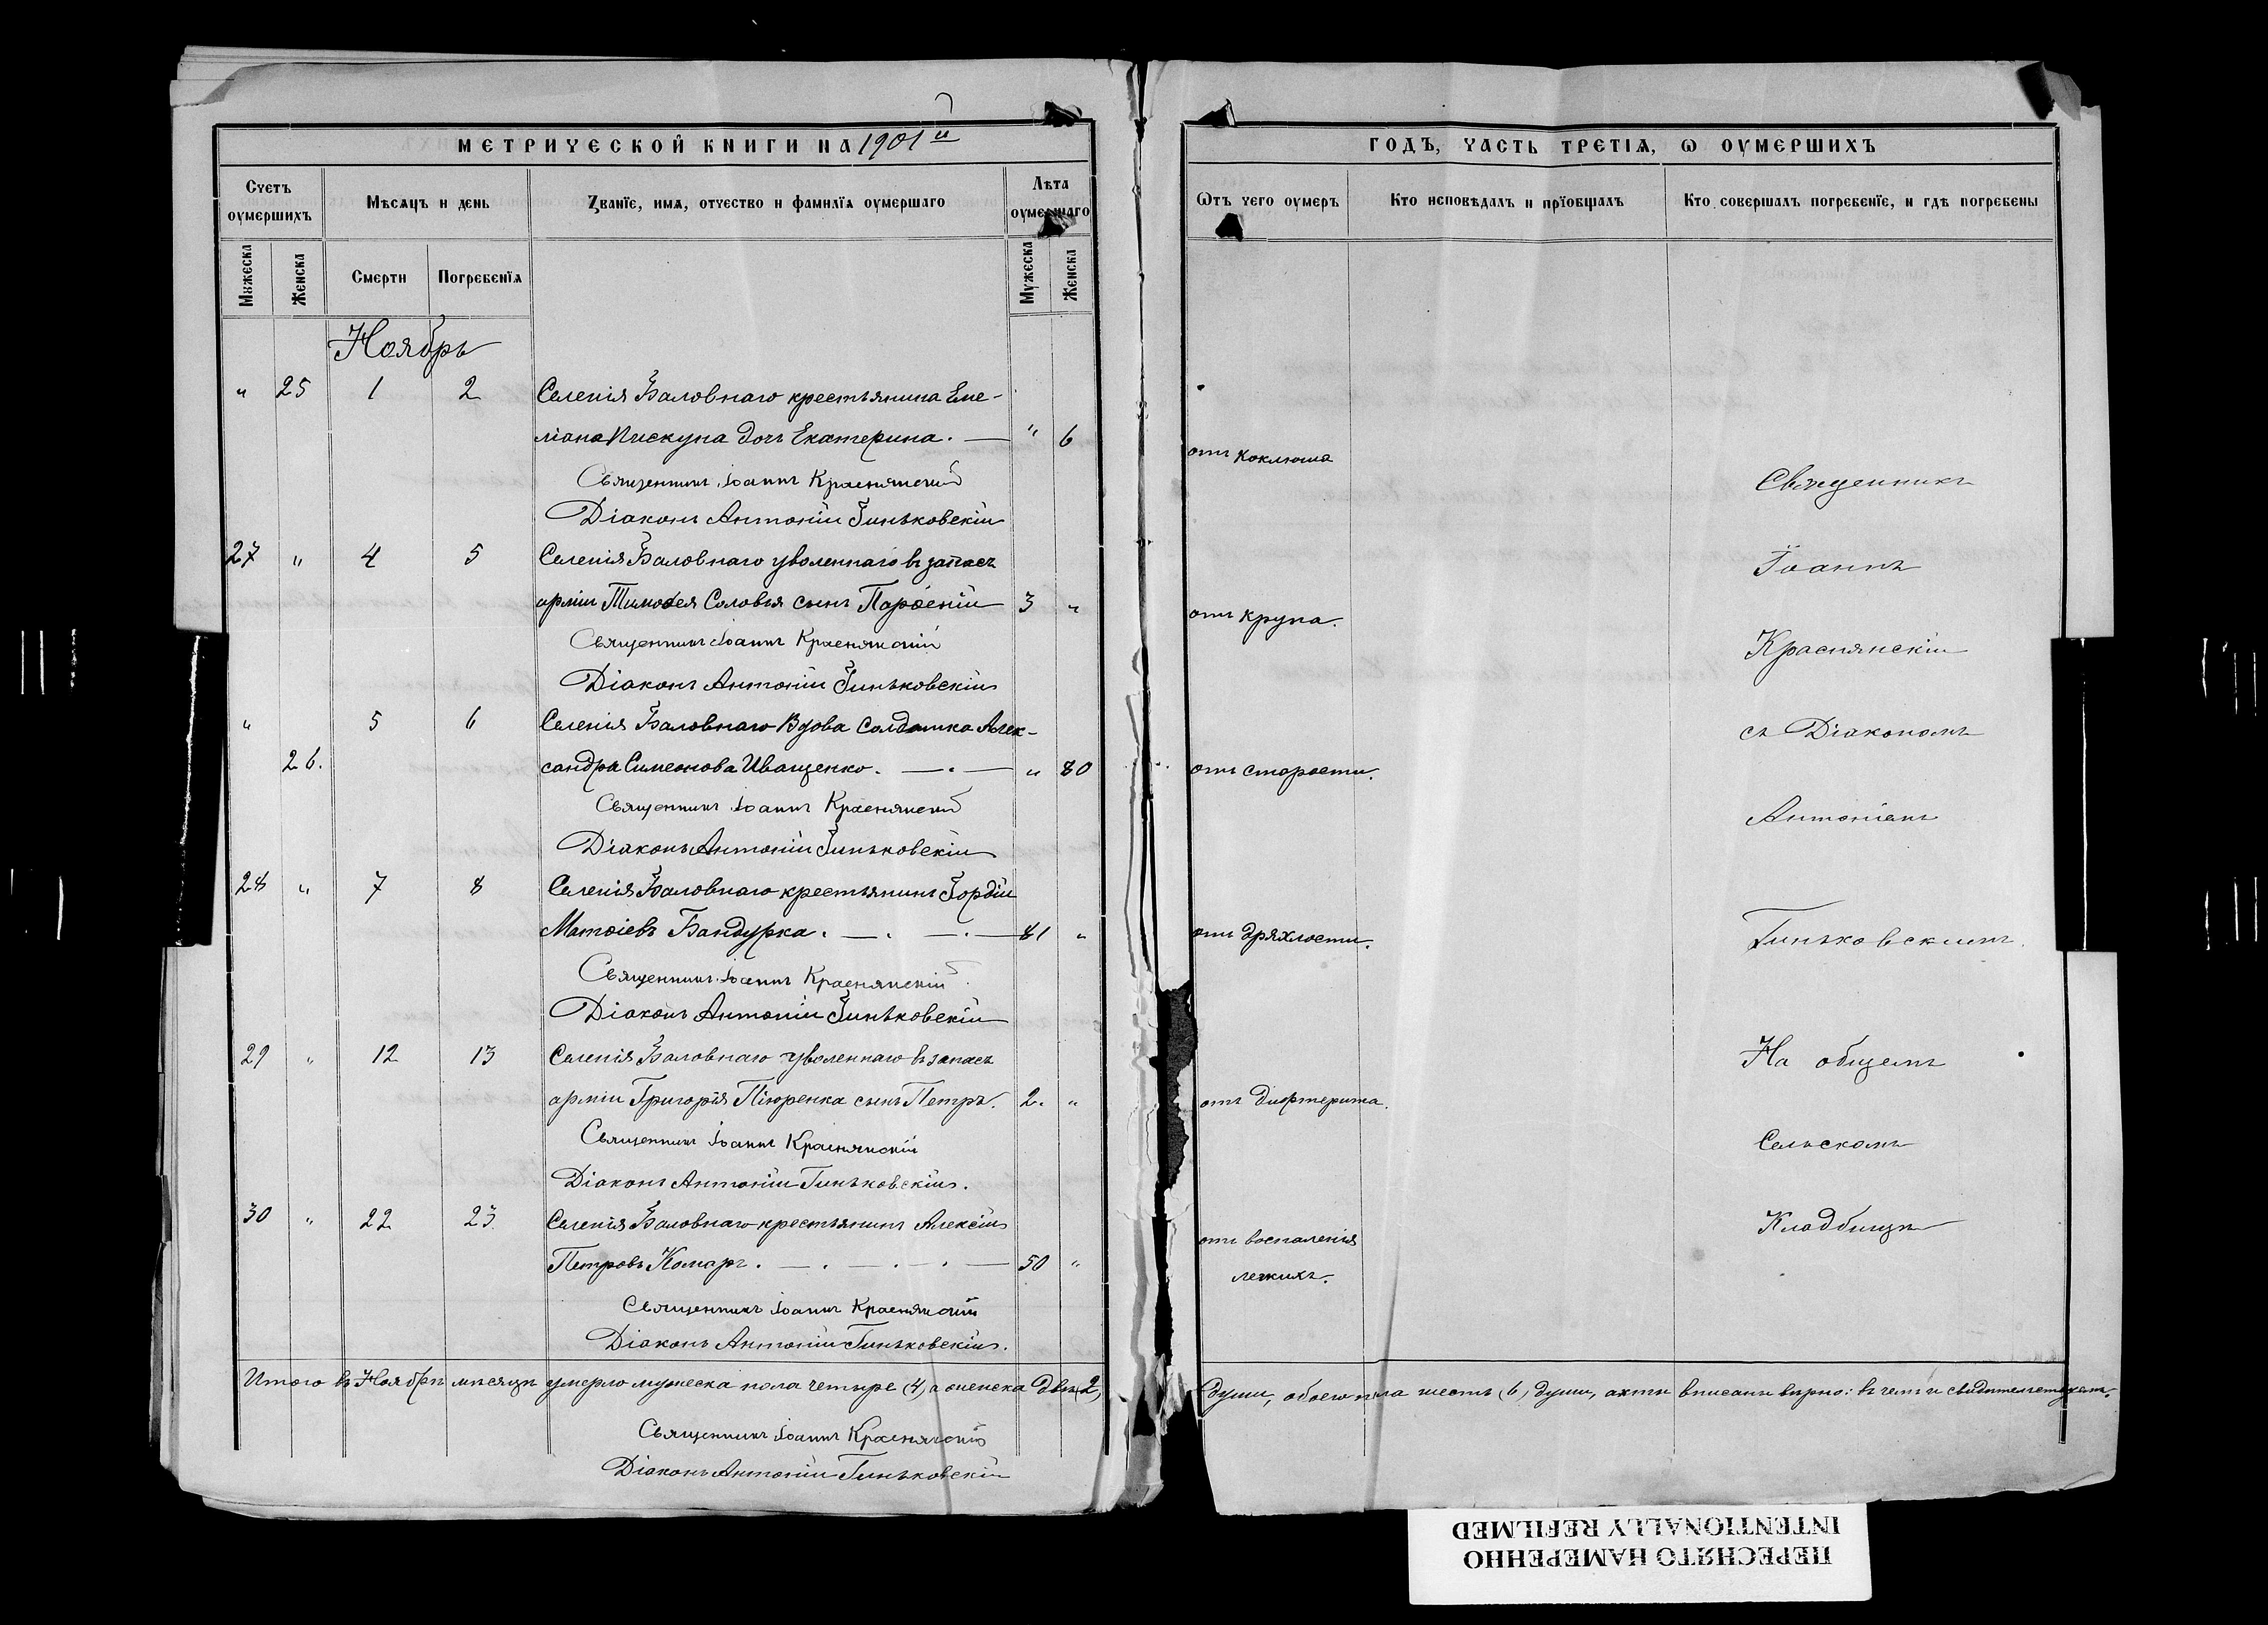 МЕТРИЧЕСКОЙ КНИГИ НА 1901й
ГОДЪ, ЧАСТЬ ТРЕТІѦ, Ѡ ОУМЕРШИХЪ
Счетъ оумершихъ
Мѣсѧцъ и день
Званїе, имѧ, отчество и фамилїѧ оумершаго
Лѣта оумершаго
Ѿтъ чего оумеръ
Кто исповѣдалъ и прїобщалъ
Кто совершалъ погребенїе, и гдѣ погребены
Мужеска
Женска
Смерти
Погребенїѧ
Мужеска
Женска
Ноябрь
" 25 1 2 Селенія Баловнаго крестьянина Еме-
ліана Пискуна дочь Екатерина. — " 6 отъ коклюша
Священникъ Іоаннъ Краснянскій
Діаконъ Антоній Гиньковскій
27 " 4 5 Селенія Баловнаго уволеннаго въ запасъ
арміи Тимоѳея Соловья сынъ Парѳеній 3 " отъ крупа.
Священникъ Іоаннъ Краснянскій
Діаконъ Антоній Гиньковскій
" 5 6 Селенія Баловнаго вдова солдатка Алек-
26. сандра Симеонова Иващенко. — . — " 80 отъ старости.
Священникъ Іоаннъ Краснянскій
Діаконъ Антоній Гиньковскій
28 " 7 8 Селенія Баловнаго крестьянинъ Гордій
Матѳіевъ Бандурка. — . — . — 81 " отъ дряхлости.
Священникъ Іоаннъ Краснянскій
Діаконъ Антоній Гиньковскій
29 " 12 13 Селенія Баловнаго уволеннаго въ запасъ
арміи Григорія Піюренка сынъ Петръ. 2. " отъ дифтерита.
Священникъ Іоаннъ Краснянскій
Діаконъ Антоній Гиньковскій.
30 " 22 23 Селенія Баловнаго крестьянинъ Алексій
Петровъ Комаръ. — . — . — . — 50 " отъ воспаленія
легкихъ.
Священникъ Іоаннъ Краснянскій
Діаконъ Антоній Гиньковскій.
Священникъ
Іоаннъ
Краснянскій
съ Діакономъ
Антоніемъ
Гиньковскимъ.
На общемъ
Сельскомъ
Кладбищѣ
Итого въ Ноябрѣ мѣсяцѣ умерло мужеска пола четыре (4), а женска двѣ (2) души, обоего пола шесть (6) души, акты вписаны вѣрно: въ чемъ и свидѣтельствуемъ.
Священникъ Іоаннъ Краснянскій
Діаконъ Антоній Гиньковскій
ПЕРЕСНЯТО НАМЕРЕННО
INTENTIONALLY REFILMED